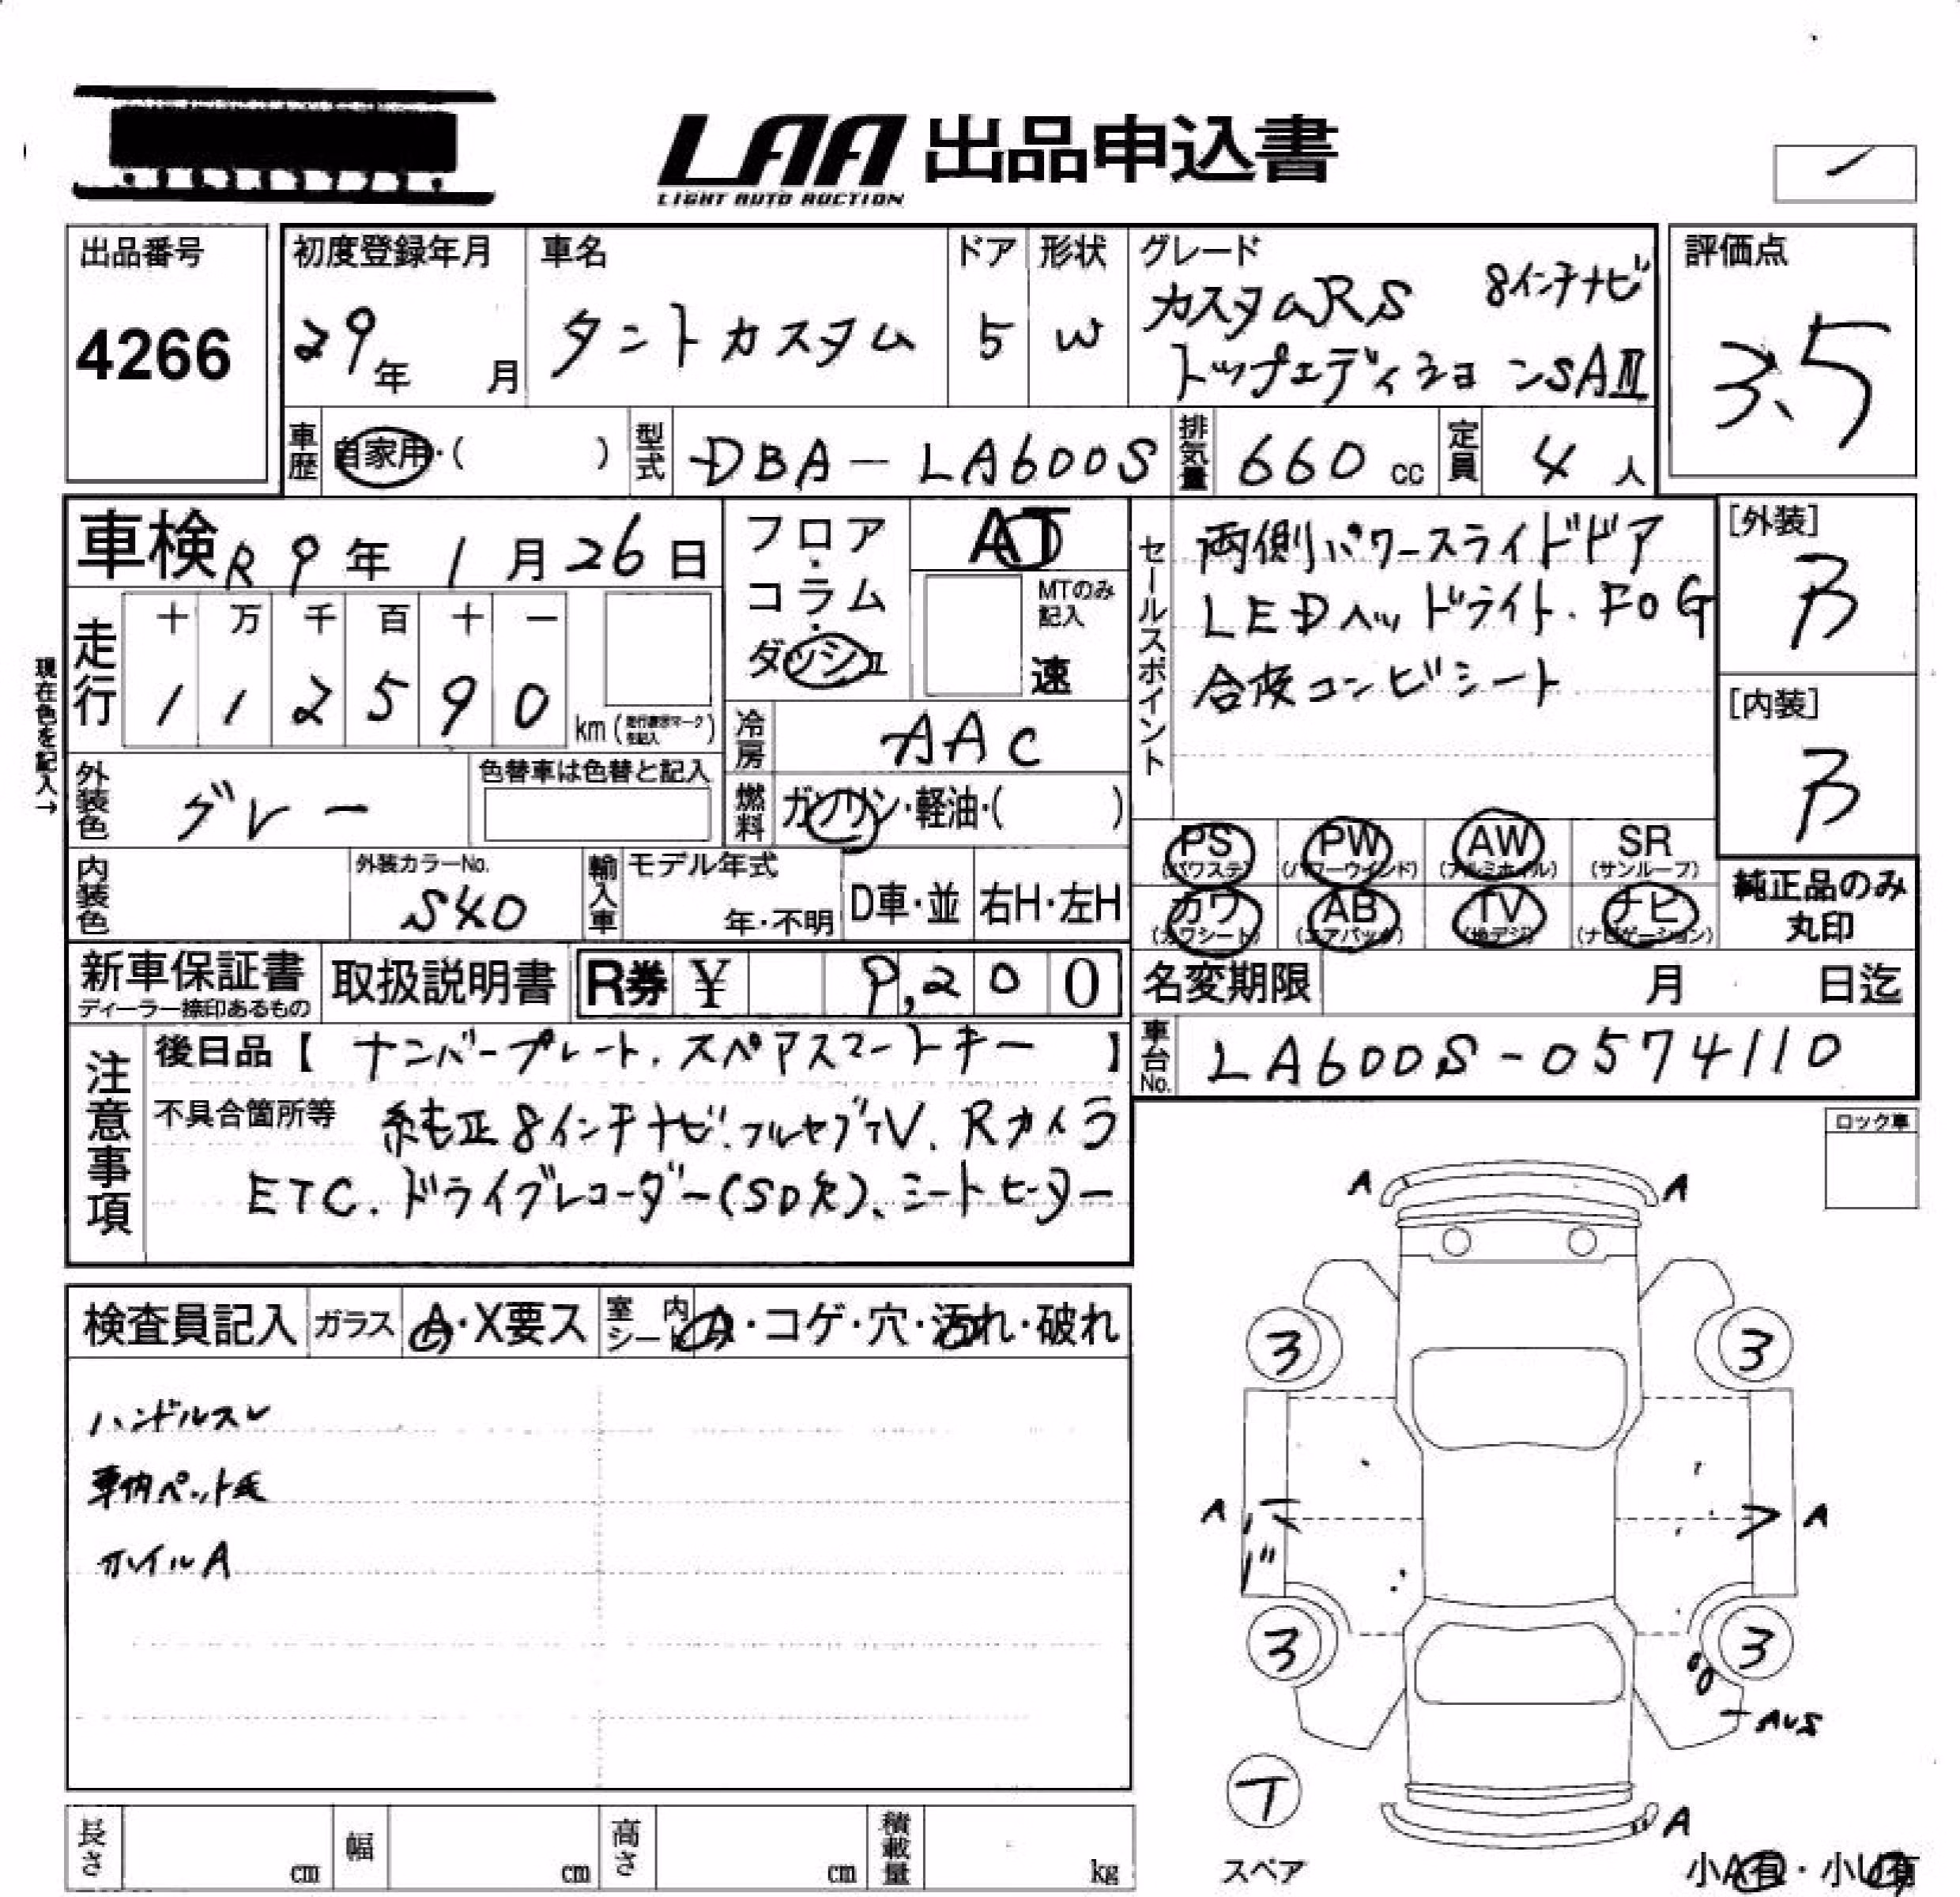 LAA 出品申込書
LIGHT AUTO AUCTION
出品番号
4266
初度登録年月
29年 月
車名
タントカスタム
ドア
5
形状
W
グレード
カスタムRS 8インチナビ
トップエディションSAⅢ
評価点
3.5
車歴 自家用・( )
型式 DBA-LA600S
排気量 660 cc
定員 4 人
車検 R9年 1月 26日
フロア・コラム・ダッシュ
AT
MTのみ記入
速
現在色を記入→
走行
十 万 千 百 十 一
1 1 2 5 9 0 km
冷房 AAC
外装色 グレー
色替車は色替と記入
燃料 ガソリン・軽油・( )
内装色
外装カラーNo.
S40
輸入車 モデル年式
年・不明
D車・並
右H・左H
セールスポイント
両側パワースライドドア
LEDヘッドライト.FOG
合皮コンビシート
[外装]
B
[内装]
B
PS (パワステ)
PW (パワーウインド)
AW (アルミホイル)
SR (サンルーフ)
カワ (カワシート)
AB (エアバック)
TV (地デジ)
ナビ (ナビゲーション)
純正品のみ
丸印
新車保証書
ディーラー捺印あるもの
取扱説明書
R券 ¥ 9,200
名変期限 月 日迄
車台No. LA600S-0574110
注意事項
後日品【 ナンバープレート.スペアスマートキー 】
不具合箇所等 純正8インチナビ.フルセグTV.Rカメラ
ETC.ドライブレコーダー(SD欠)、シートヒーター
ロック車
検査員記入
ガラス A・X要ス
室内シート A・コゲ・穴・汚れ・破れ
ハンドルスレ
車内ペット毛
ホイルA
A A
3 3
A A
3 3
AUS
T
A
スペア
小A有・小U有
長さ cm
幅 cm
高さ cm
積載量 kg